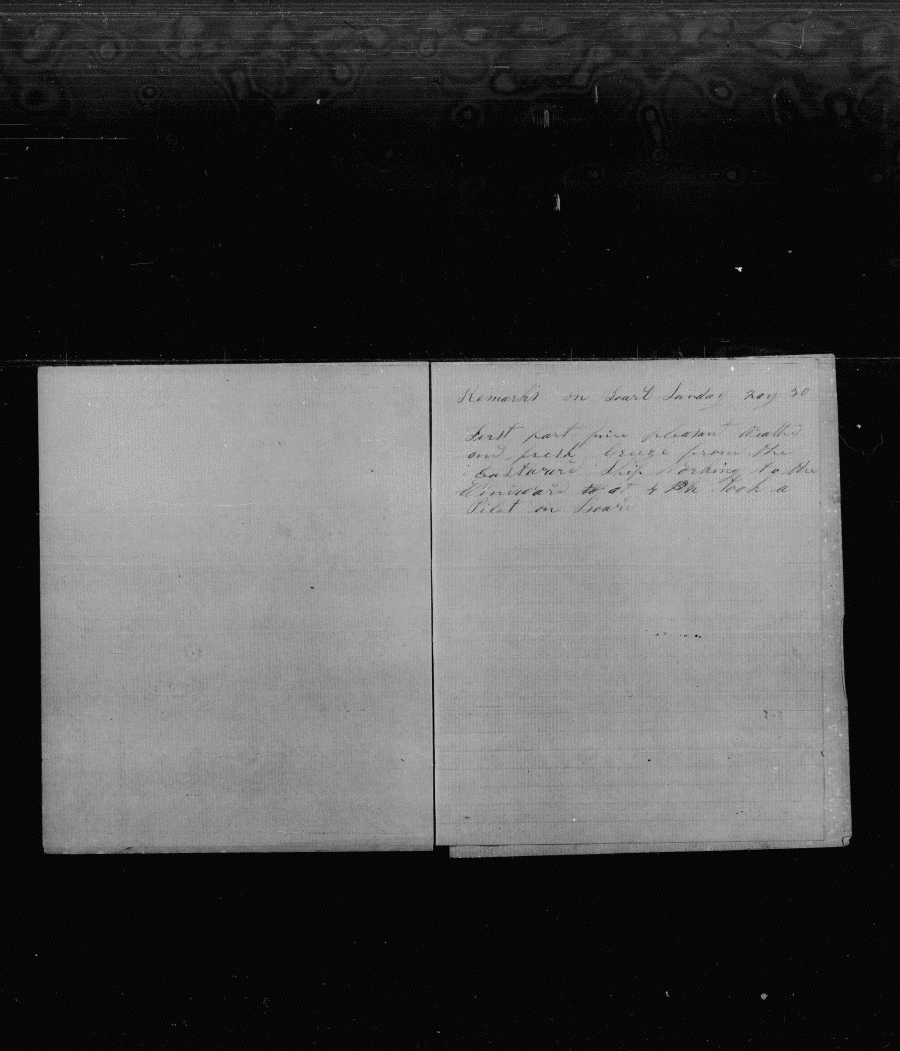 Remarks on Board Sunday May 30
First part fine pleasant Weather
and fresh breeze from the
Eastward Ship Working to the
Windward to at 4 PM took a
Pilot on Board